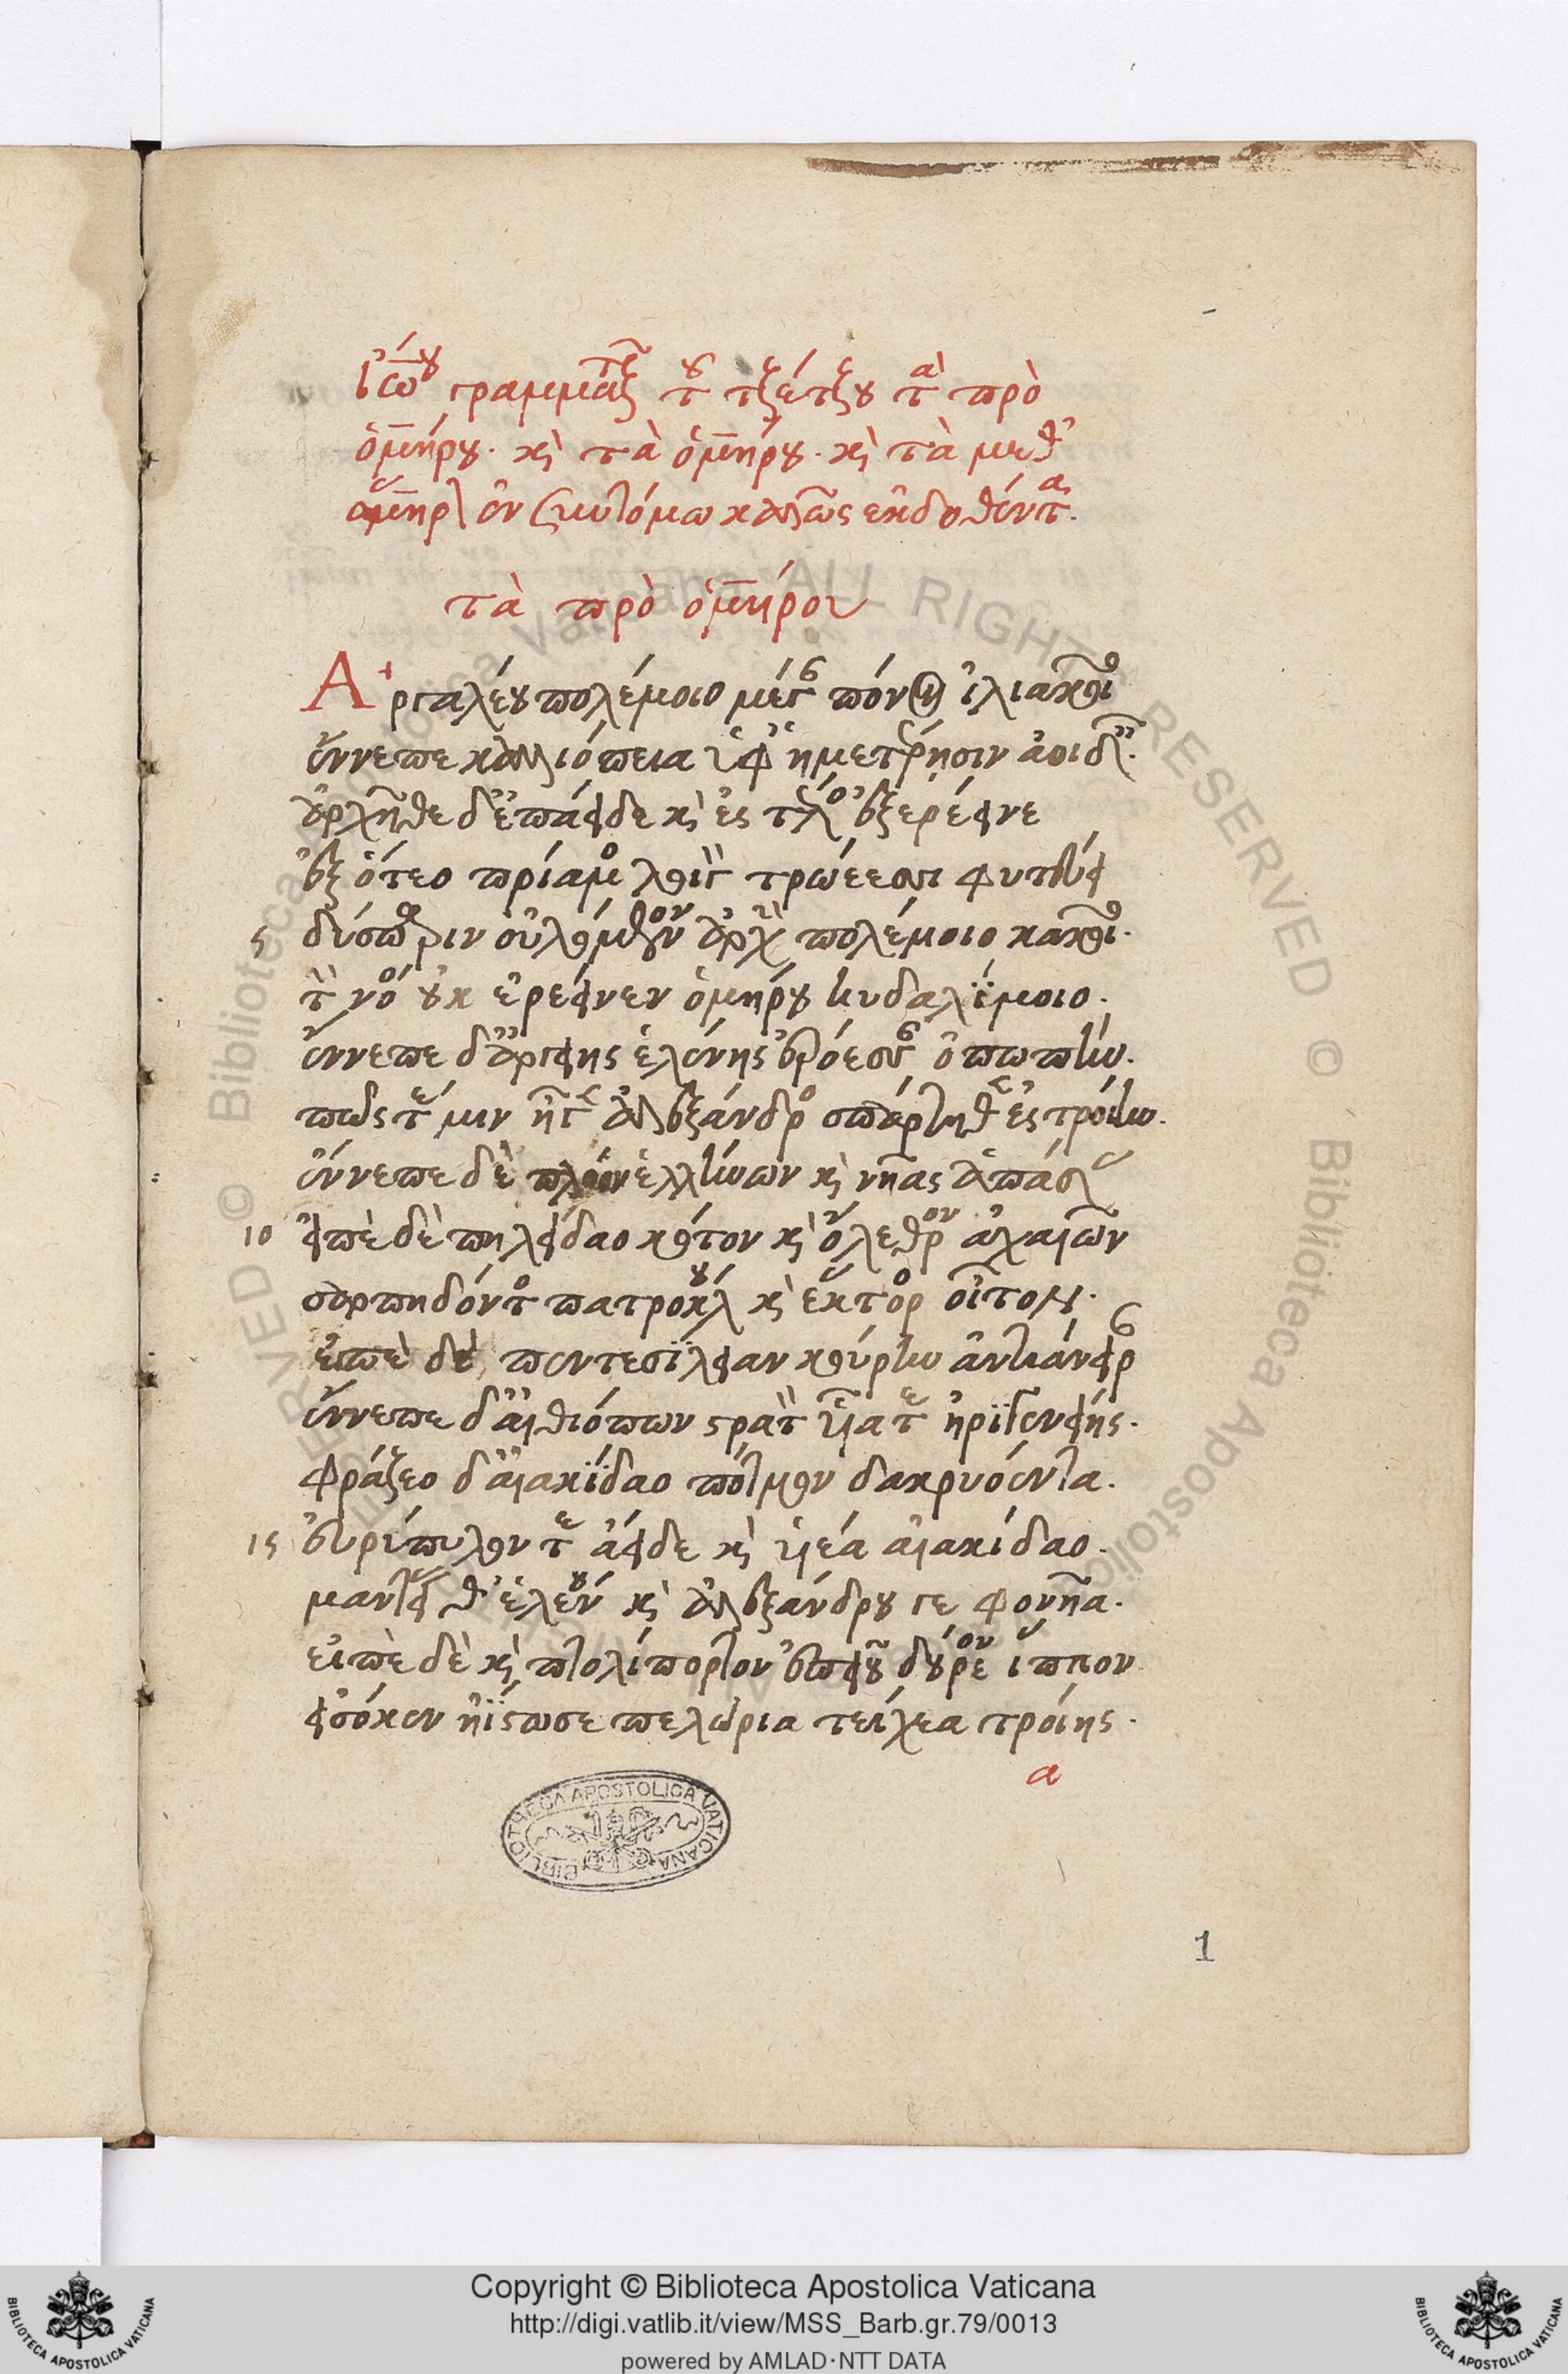 ἰωάννου γραμματικοῦ τοῦ τζέτζου τὰ πρὸ
ὁμήρου. καὶ τὰ ὁμήρου. καὶ τὰ μεθ᾽
ὅμηρον ἐν συντόμω καλῶς ἐκδοθέντα.
τὰ πρὸ ὁμήρου
Ἀργαλέου πολέμοιο μέγαν πόνον ἰλιακοῖο
ἔννεπε καλλιόπεια ὑφ᾽ ἡμετέρησιν ἀοιδαῖς.
ἀρχῆθε δ᾽ ἐπάειδε καὶ ἐς τέλος ἐξερέεινε
ἐξ ὅτεο πρίαμος λοιγὸν τρώεεσσι φυτεύει
5 δύσπαριν οὐλόμενον ἀρχὴν πολέμοιο κακοῖο.
τὸν νόος οὐκ ἐρέεινεν ὁμήρου κυδαλίμοιο.
ἔννεπε δ᾽ ἀργείης ἑλένης ἐρόεσσαν ὀπωπήν.
πῶς τέ μιν ἤγαγε ἀλέξανδρος σπάρτηθεν ἐς τροίην.
ἔννεπε δὲ πλόον ἑλλήνων καὶ νῆας ἁπάσας
10 εἰπὲ δὲ πηλείδαο κότον καὶ ὄλεθρον ἀχαιῶν
σαρπηδόντος πατρόκλου καὶ ἕκτορος οἶτον.
εἰπὲ δὲ πεντεσίλειαν κούρην ἀντιάνειραν
ἔννεπε δ᾽ αἰθιόπων στρατὸν υἷα τε ἠριγενείης.
φράζεο δ᾽ αἰακίδαο πότμον δακρυόεντα.
15 εὐρύπυλον τε ἄειδε καὶ υἱέα αἰακίδαο.
μαντείας θ᾽ ἑλένου καὶ ἀλεξάνδρου γε φονῆα.
εἰπὲ δὲ καὶ πτολίπορτον ἐπειοῦ δούρεον ἵππον
εἰσόκεν ἠΐστωσε πελώρια τείχεα τροίης.
α
BIBLIOTHECA APOSTOLICA VATICANA
1
Copyright © Biblioteca Apostolica Vaticana
http://digi.vatlib.it/view/MSS_Barb.gr.79/0013
powered by AMLAD·NTT DATA